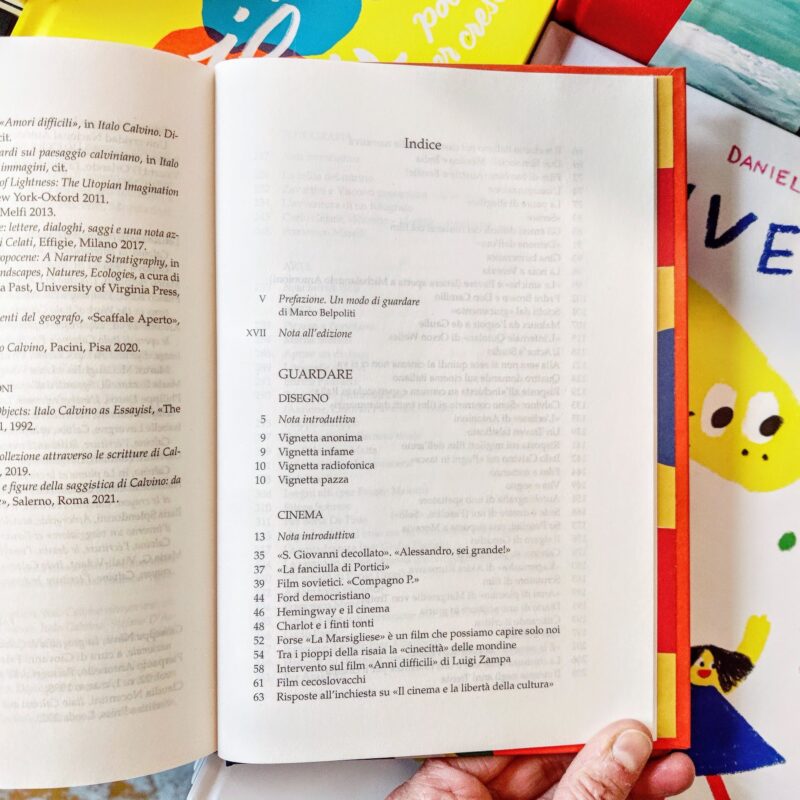 po
il
er cresc
DANIEL
VE
«Amori difficili», in Italo Calvino. Di-
cit.
ardi sul paesaggio calviniano, in Italo
immagini, cit.
of Lightness: The Utopian Imagination
ew York-Oxford 2011.
Melfi 2013.
e: lettere, dialoghi, saggi e una nota az-
i Celati, Effigie, Milano 2017.
opocene: A Narrative Stratigraphy, in
ndscapes, Natures, Ecologies, a cura di
a Past, University of Virginia Press,
enti del geografo, «Scaffale Aperto»,
o Calvino, Pacini, Pisa 2020.
ONI
Objects: Italo Calvino as Essayist, «The
1, 1992.
ollezione attraverso le scritture di Cal-
, 2019.
e figure della saggistica di Calvino: da
e», Salerno, Roma 2021.
Indice
V Prefazione. Un modo di guardare
di Marco Belpoliti
XVII Nota all'edizione
GUARDARE
DISEGNO
5 Nota introduttiva
9 Vignetta anonima
9 Vignetta infame
10 Vignetta radiofonica
10 Vignetta pazza
CINEMA
13 Nota introduttiva
35 «S. Giovanni decollato». «Alessandro, sei grande!»
37 «La fanciulla di Portici»
39 Film sovietici. «Compagno P.»
44 Ford democristiano
46 Hemingway e il cinema
48 Charlot e i finti tonti
52 Forse «La Marsigliese» è un film che possiamo capire solo noi
54 Tra i pioppi della risaia la «cinecittà» delle mondine
58 Intervento sul film «Anni difficili» di Luigi Zampa
61 Film cecoslovacchi
63 Risposte all'inchiesta su «Il cinema e la libertà della cultura»